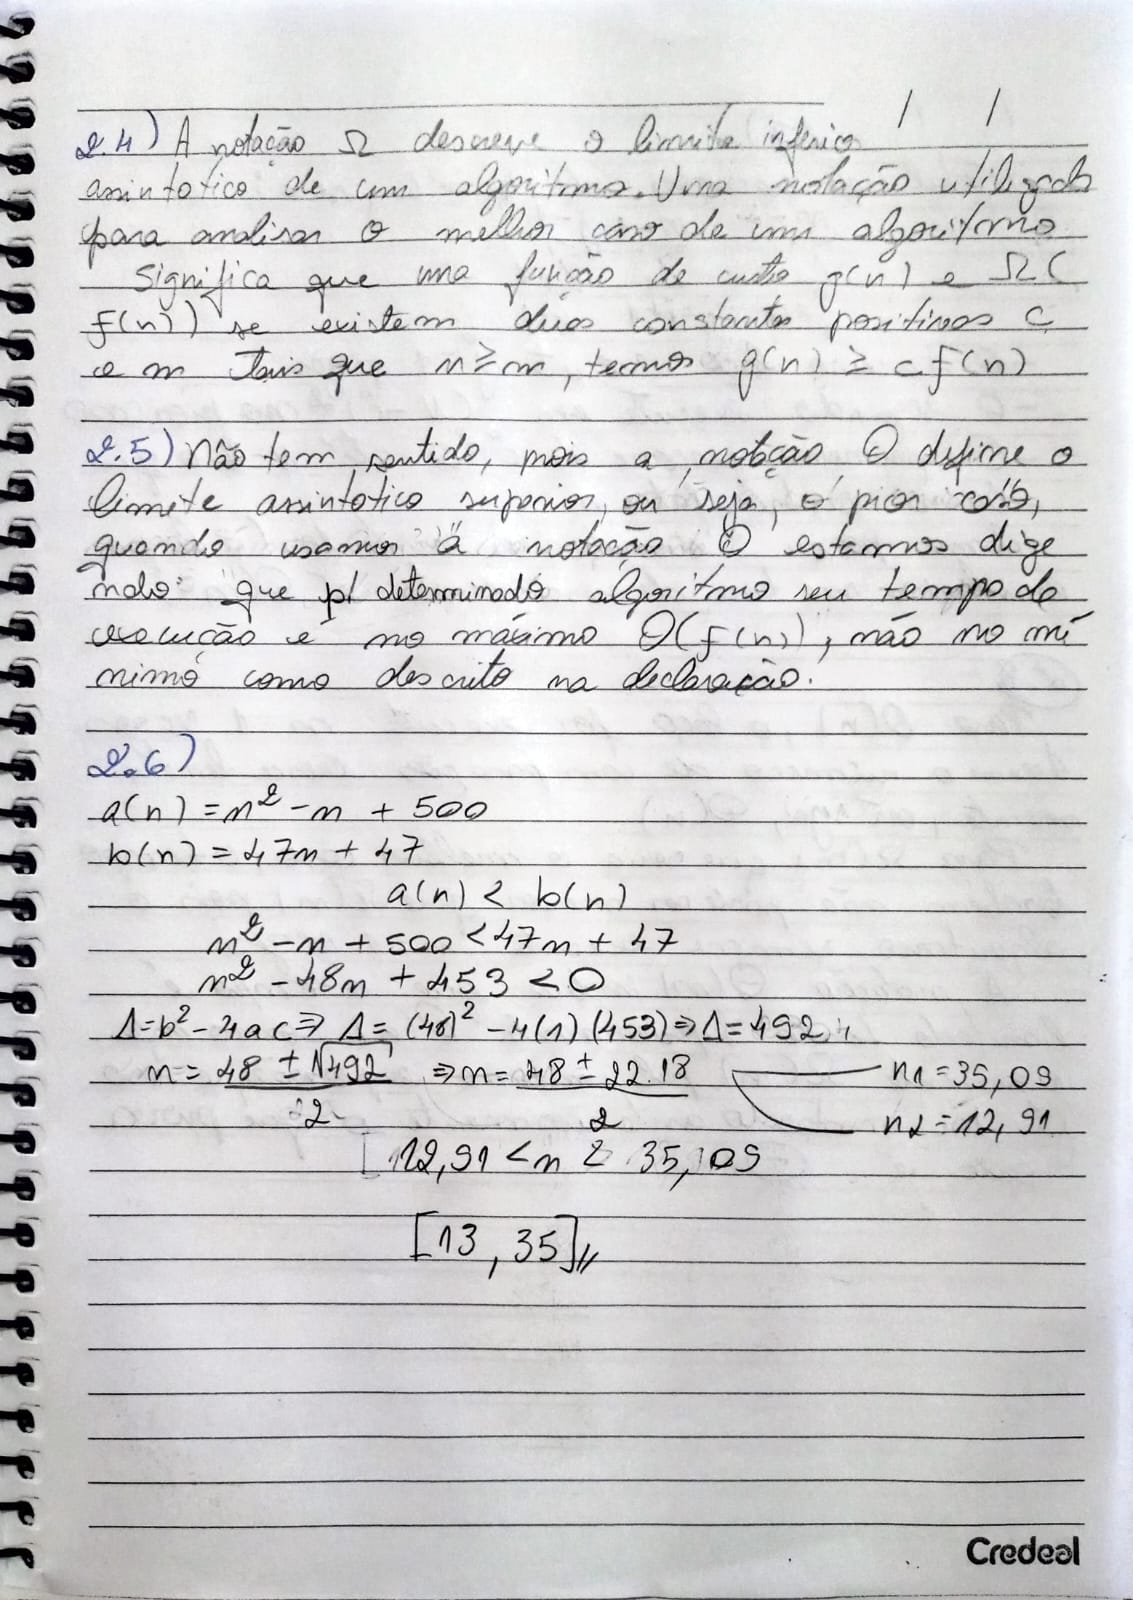 / /
2.4) A notação Ω descreve o limite inferior
assintotico de um algoritmo. Uma notação utilizada
para analisar o melhor caso de um algoritmo
Significa que uma função de custo g(n) e Ω(
f(n)) se existem duas constantes positivas c
e m tais que n ≥ m, temos g(n) ≥ c f(n)
2.5) Não tem sentido, pois a notação O define o
limite assintotico superior, ou seja, o pior caso,
quando usamos a notação O estamos dize
ndo que p/ determinado algoritmo seu tempo de
execução é no máximo O(f(n)), não no mí
nimo como descrito na declaração.
2.6)
a(n) = n² - n + 500
b(n) = 47n + 47
a(n) < b(n)
n² - n + 500 < 47n + 47
n² - 48n + 453 < 0
Δ = b² - 4ac ⇒ Δ = (48)² - 4(1)(453) ⇒ Δ = 492
n = 48 ± √492 / 2 ⇒ n = 48 ± 22.18 / 2 n1 = 35,09
n2 = 12,91
12,91 < n < 35,09
[13, 35]//
Credeal